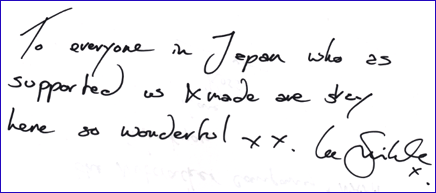 To everyone in Japan who as
supported us & made are stay
here so wonderful x x. Lee
x.